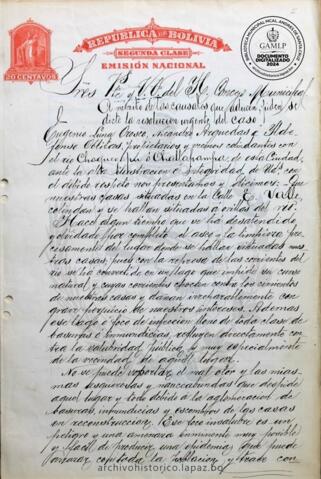 REPÚBLICA DE BOLIVIA
SEGUNDA CLASE
EMISIÓN NACIONAL
20 CENTAVOS
BIBLIOTECA MUNICIPAL MCAL. ANDRÉS DE SANTA CRUZ
GAMLP
DOCUMENTO
DIGITALIZADO
2024
del H. Concejo Municipal
En mérito de las causales que aducen, piden se
dicte la resolución urgente del caso
Eugenio Luna Orosco, Arguedas y
propietarios y vecinos colindantes con
el río Choqueyapu ó Challapampa, de esta Ciudad,
ante la alta ilustración é integridad de Ud. con
el debido respeto nos presentamos y decimos: Que
nuestras casas situadas en la Calle
y se hallan situadas á orillas del río.
Hace algún tiempo que se ha desatendido
y olvidado por completo el aseo y la limpieza pre-
cisamente del lugar donde se hallan ubicadas nues-
tras casas, pues con la represa de las corrientes del
río se há convertido en un lago que impide su curso
natural y cuyas corrientes chocan contra los cimientos
de nuestras casas y dañan incesantemente con
grave perjuicio de nuestros intereses. Además
ese lago ó foco de infección lleno de toda clase de
basuras é inmundicias redunda directamente con-
tra la salubridad pública y muy especialmente
de la vecindad de aquel lugar.
No se puede soportar el mal olor y las mias-
mas asquerosas y nauseabundas que despide
aquel lugar y todo debido á la aglomeración de
basuras, inmundicias y escombros de las casas
en reconstrucción. Ese foco insalubre es un
peligro y una amenaza inminente muy posible
y fácil de producir una epidemia que puede
con
archivohistorico.lapaz.bo